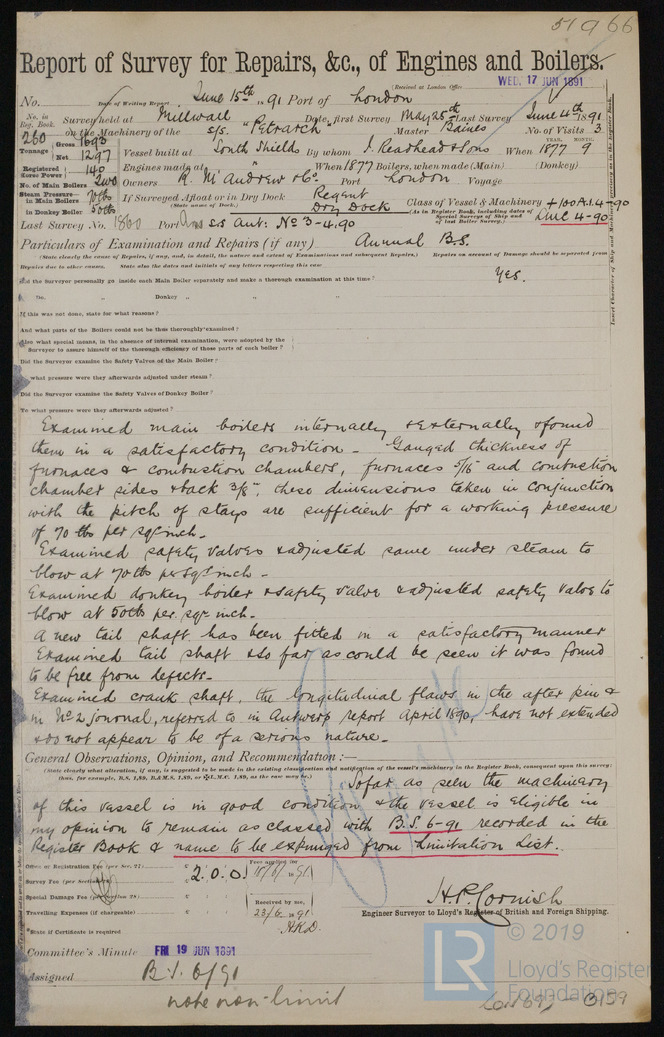 51966
Report of Survey for Repairs, &c., of Engines and Boilers.
(Received at London Office WED. 17 JUN 1891
No. Date of Writing Report June 15th 1891 Port of London
No. in Reg. Book. Survey held at Millwall Date, first Survey May 25th Last Survey June 4th 1891
260 on the Machinery of the s/s. "Petrarch" Master Baines No. of Visits 3.
Tonnage Gross 1693 Net 1297 Vessel built at South Shields By whom J. Readhead & Sons When 1877 YEAR. MONTH. 9
Registered Horse Power 140 Engines made at When 1877 Boilers, when made (Main) (Donkey)
No. of Main Boilers two Owners R. McAndrew & Co. Port London Voyage
Steam Pressure in Main Boilers 70lbs If Surveyed Afloat or in Dry Dock Regent Class of Vessel & Machinery +100A1.4-90
in Donkey Boiler 50lbs (State name of Dock.) Dry Dock (As in Register Book, including dates of Special Surveys of Ship and of last Boiler Survey.) LMC 4-90
Last Survey No. 1860 Port s.s Ant. No 3-4.90
Particulars of Examination and Repairs (if any) Annual B.S.
(State clearly the cause of Repairs, if any, and, in detail, the nature and extent of Examinations and subsequent Repairs.) Repairs on account of Damage should be separated from
Repairs due to other causes. State also the dates and initials of any letters respecting this case
Did the Surveyor personally go inside each Main Boiler separately and make a thorough examination at this time? Yes.
Do. Donkey " " "
If this was not done, state for what reasons?
And what parts of the Boilers could not be thus thoroughly examined?
Also what special means, in the absence of internal examination, were adopted by the
Surveyor to assure himself of the thorough efficiency of those parts of each boiler?
Did the Surveyor examine the Safety Valves of the Main Boiler?
what pressure were they afterwards adjusted under steam?
Did the Surveyor examine the Safety Valves of Donkey Boiler?
To what pressure were they afterwards adjusted?
Examined main boilers internally & externally & found
them in a satisfactory condition - Gauged thickness of
furnaces & combustion chambers, furnaces 5/16 and combustion
chamber sides & back 3/8", these dimensions taken in conjunction
with the pitch of stays are sufficient for a working pressure
of 70 lbs per sqr inch.
Examined safety valves & adjusted same under steam to
blow at 70 lbs per sqr inch -
Examined donkey boiler & safety valve & adjusted safety valve to
blow at 50lbs per. sqr inch.
A new tail shaft has been fitted in a satisfactory manner
Examined tail shaft & so far as could be seen it was found
to be free from defects.
Examined crank shaft, the longitudinal flaws in the after pin &
in No 2 journal, referred to in Antwerp report April 1890, have not extended
& do not appear to be of a serious nature.
General Observations, Opinion, and Recommendation :—
(State clearly what alteration, if any, is suggested to be made in the existing classification and notification of the vessel's machinery in the Register Book, consequent upon this survey:
thus, for example, B.S. 1,89, B.&M.S. 1,89, or L.M.C. 1,89, as the case may be.)
So far as seen the machinery
of this vessel is in good condition & the vessel is eligible in
my opinion to remain as classed with B.S. 6-91 recorded in the
Register Book & name to be expunged from Limitation List.
Office or Registration Fee (per Sec. 27) £ : : Fees applied for
Survey Fee (per Section £ 2.0.0 1891
Special Damage Fee (per Section 28) £ : : Received by me,
Travelling Expenses (if chargeable) £ : : 23/6 1891
State if Certificate is required
H.P. Cornish
Engineer Surveyor to Lloyd's Register of British and Foreign Shipping.
Committee's Minute FRI 19 JUN 1891
Assigned B.S. 6/91
note non-limit
LR © 2019
Lloyd's Register
Foundation